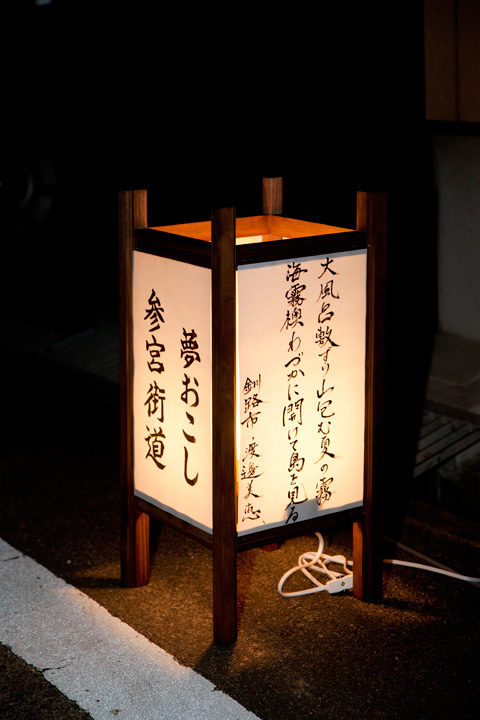 夢おこし
参宮街道
大風呂敷すり山包む夏の霧
海霧襖わづかに開けて島を見る
釧路市・渡邊美恵